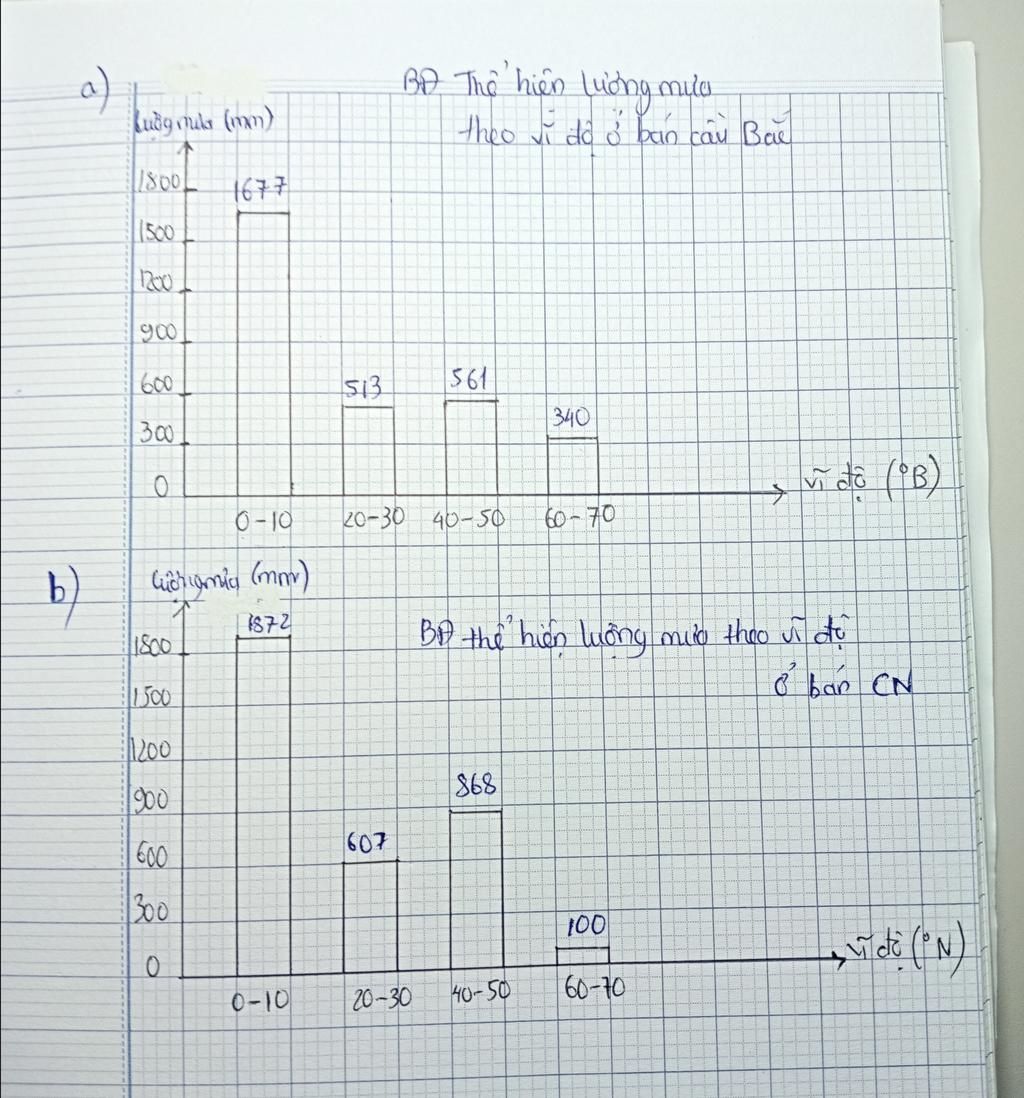 a)
BĐ Thể hiện lượng mưa
theo vĩ độ ở bán cầu Bắc
Lượng mưa (mm)
1800
1677
1500
1200
900
600
513
561
300
340
0
vĩ độ (°B)
0-10 20-30 40-50 60-70
b)
Lượng mưa (mm)
1872
BĐ thể hiện lượng mưa theo vĩ độ
ở bán CN
1800
1500
1200
900
868
600
607
300
100
0
vĩ độ (°N)
0-10 20-30 40-50 60-70